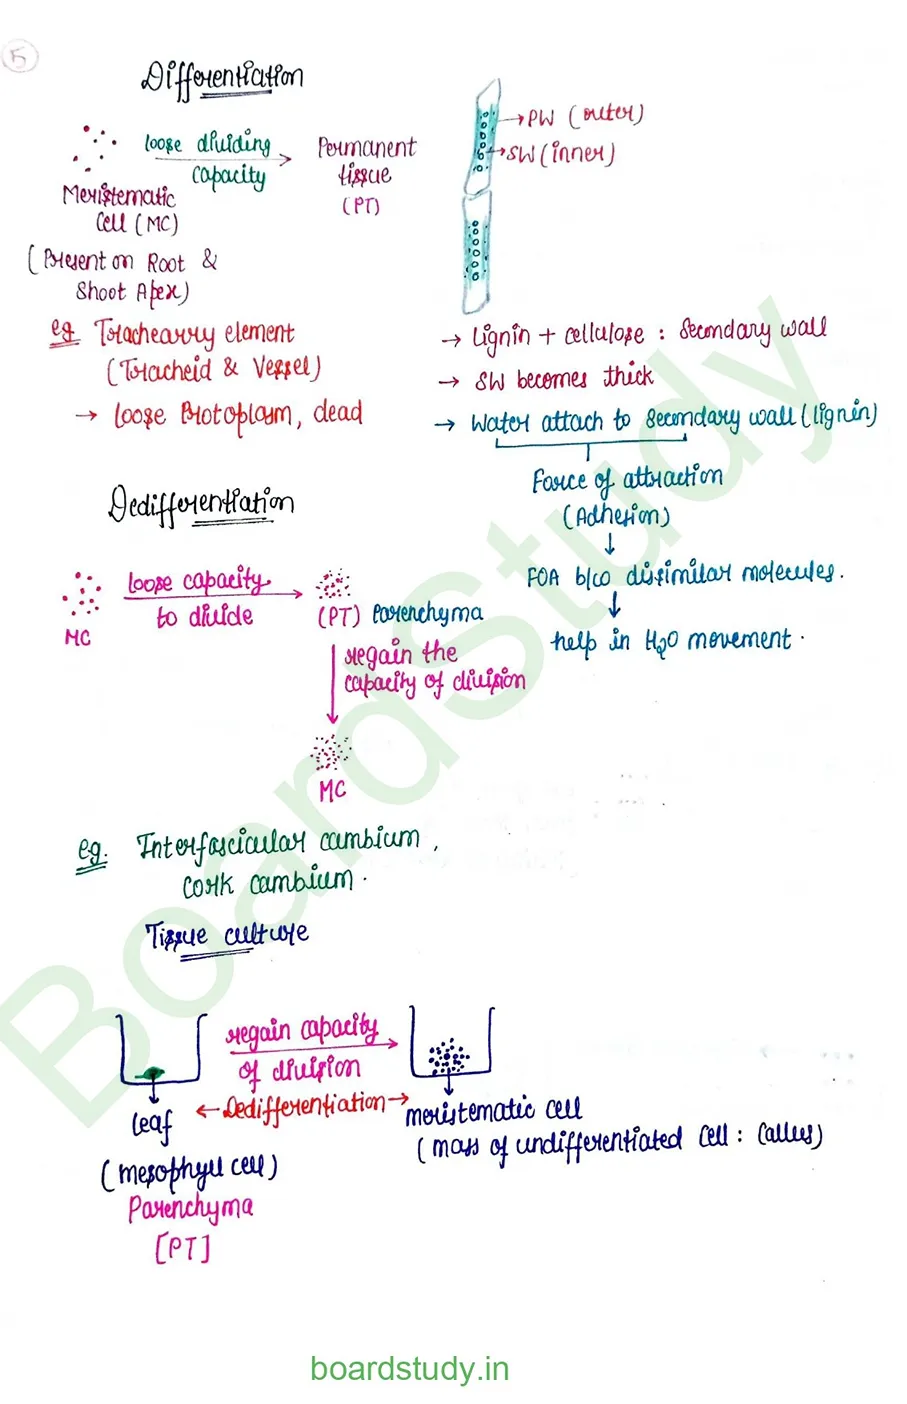 5
Differentiation
loose dividing
capacity
Permanent
tissue
(PT)
Meristematic
Cell (MC)
(Present on Root &
Shoot Apex)
eg Trachearry element
(Tracheid & Vessel)
→ loose Protoplasm, dead
→ PW (outer)
→ SW (inner)
→ Lignin + cellulose : Secondary wall
→ SW becomes thick
→ Water attach to Secondary wall (lignin)
Force of attraction
(Adhesion)
↓
FOA b/co dissimilar molecules.
↓
help in H₂O movement.
Dedifferentiation
MC
loose capacity
to divide
(PT) Parenchyma
regain the
capacity of division
MC
eg. Interfascicular cambium,
cork cambium.
Tissue culture
regain capacity
of division
← Dedifferentiation →
leaf
(mesophyll cell)
Parenchyma
[PT]
meristematic cell
(mass of undifferentiated cell : callus)
BoardStudy
boardstudy.in